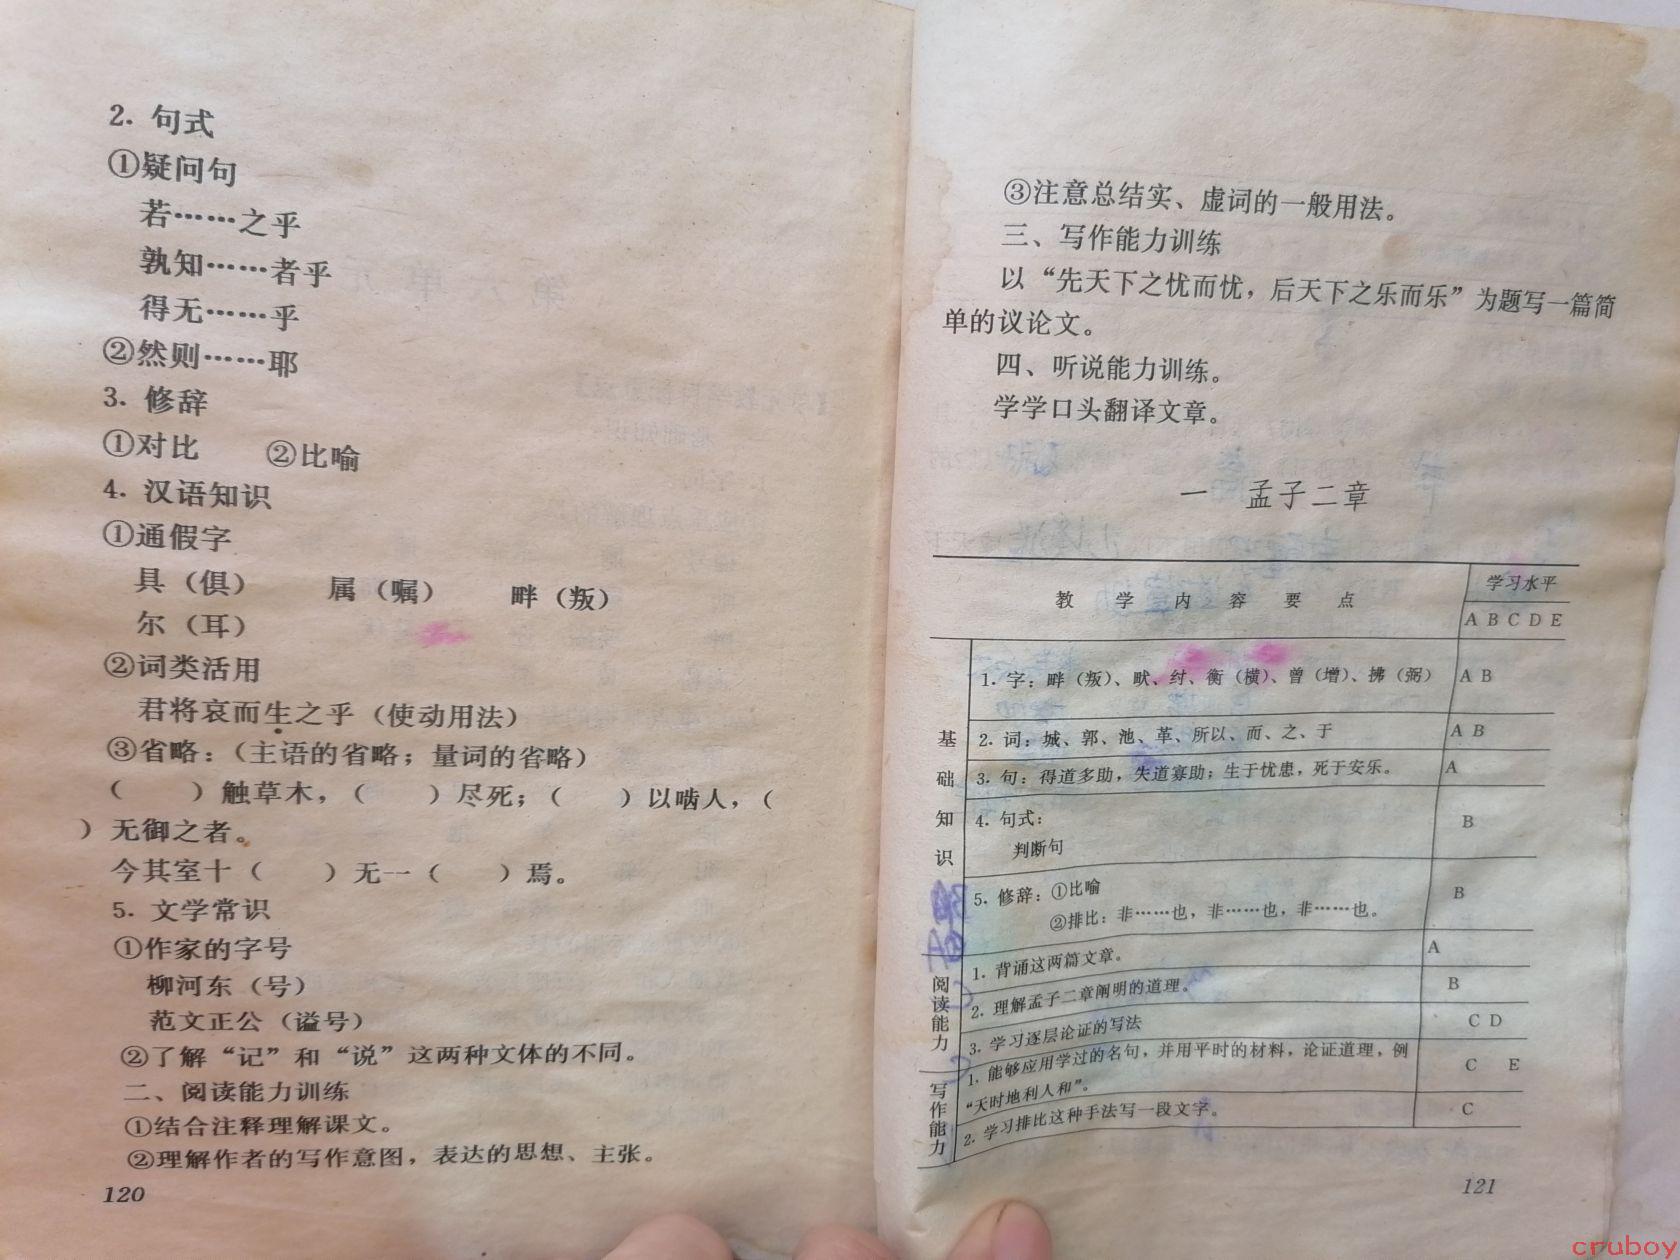 2. 句式
①疑问句
若……之乎
孰知……者乎
得无……乎
②然则……耶
3. 修辞
①对比 ②比喻
4. 汉语知识
①通假字
具（俱） 属（嘱） 畔（叛）
尔（耳）
②词类活用
君将哀而生之乎（使动用法）
③省略：（主语的省略；量词的省略）
（ ）触草木，（ ）尽死；（ ）以啮人，（
）无御之者。
今其室十（ ）无一（ ）焉。
5. 文学常识
①作家的字号
柳河东（号）
范文正公（谥号）
②了解“记”和“说”这两种文体的不同。
二、阅读能力训练
①结合注释理解课文。
②理解作者的写作意图，表达的思想、主张。
120
③注意总结实、虚词的一般用法。
三、写作能力训练
以“先天下之忧而忧，后天下之乐而乐”为题写一篇简
单的议论文。
四、听说能力训练。
学学口头翻译文章。
一 孟子二章
教学内容要点 学习水平
A B C D E
基础知识
1. 字：畔（叛）、畎、纣、衡（横）、曾（增）、拂（弼） A B
2. 词：城、郭、池、革、所以、而、之、于 A B
3. 句：得道多助，失道寡助；生于忧患，死于安乐。 A
4. 句式： B
判断句
5. 修辞：①比喻 B
②排比：非……也，非……也，非……也。
阅读能力
1. 背诵这两篇文章。 A
2. 理解孟子二章阐明的道理。 B
3. 学习逐层论证的写法 C D
写作能力
1. 能够应用学过的名句，并用平时的材料，论证道理，例 C E
“天时地利人和”。
2. 学习排比这种手法写一段文字。 C
121
cruboy